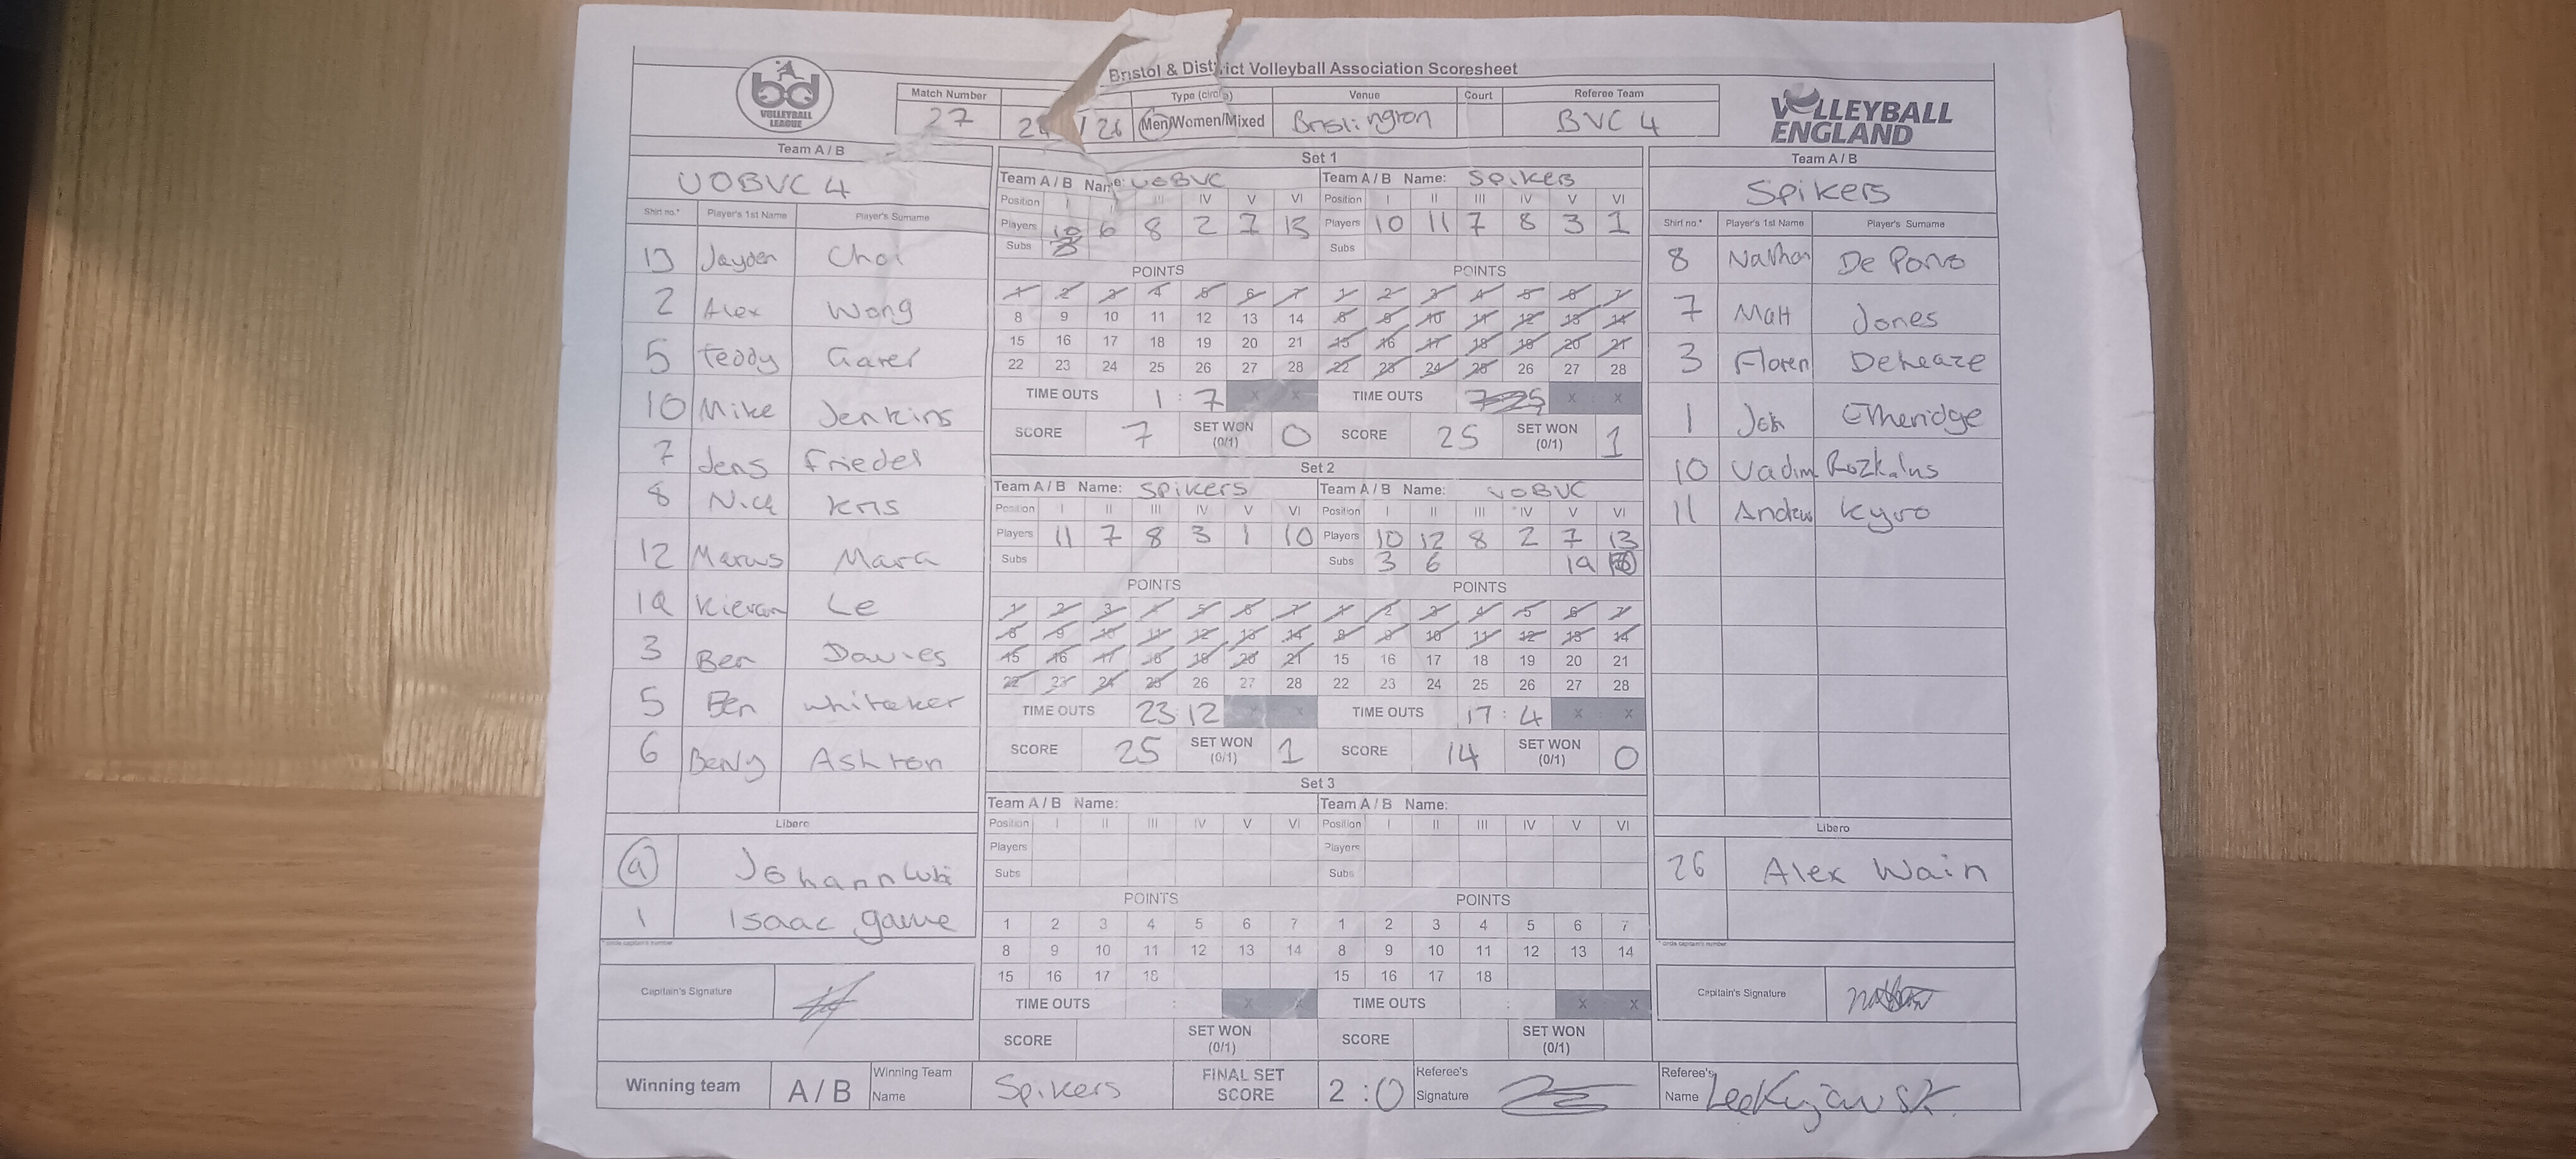 Bristol & District Volleyball Association Scoresheet
bd VOLLEYBALL LEAGUE
VOLLEYBALL ENGLAND
Match Number Type (circle) Venue Court Referee Team
27 / 26 Men/Women/Mixed Brislington BVC 4
Team A / B
UOBVC 4
Shirt no.* Player's 1st Name Player's Surname
13 Jayden Choi
2 Alex Wong
5 Teddy
10 Mike Jenkins
7 Jens Friedel
8 Nick Kris
12 Marcus Mara
19 Kieran Le
3 Ben Davies
5 Ben Whiteker
6 Ashton
Libero
Johann
1 Isaac game
*circle captain's number
Captain's Signature
Set 1
Team A / B Name: UOBVC
Position I III IV V VI
Players 10 6 8 2 7 13
Subs
POINTS
1 2 3 4 5 6 7
8 9 10 11 12 13 14
15 16 17 18 19 20 21
22 23 24 25 26 27 28
TIME OUTS 1 : 7 X X
SCORE 7 SET WON (0/1) 0
Team A / B Name: Spikers
Position I II III IV V VI
Players 10 11 7 8 3 1
Subs
POINTS
1 2 3 4 5 6 7
8 9 10 11 12 13 14
15 16 17 18 19 20 21
22 23 24 25 26 27 28
TIME OUTS X X
SCORE 25 SET WON (0/1) 1
Set 2
Team A / B Name: Spikers
Position I II III IV V VI
Players 11 7 8 3 1 10
Subs
POINTS
1 2 3 4 5 6 7
8 9 10 11 12 13 14
15 16 17 18 19 20 21
22 23 24 25 26 27 28
TIME OUTS 23 : 12 X X
SCORE 25 SET WON (0/1) 1
Team A / B Name: UOBVC
Position I II III IV V VI
Players 10 12 8 2 7 13
Subs 3 6 19
POINTS
1 2 3 4 5 6 7
8 9 10 11 12 13 14
15 16 17 18 19 20 21
22 23 24 25 26 27 28
TIME OUTS 17 : 4 X X
SCORE 14 SET WON (0/1) 0
Set 3
Team A / B Name:
Position I II III IV V VI
Players
Subs
POINTS
1 2 3 4 5 6 7
8 9 10 11 12 13 14
15 16 17 18
TIME OUTS : X X
SCORE SET WON (0/1)
Team A / B Name:
Position I II III IV V VI
Players
Subs
POINTS
1 2 3 4 5 6 7
8 9 10 11 12 13 14
15 16 17 18
TIME OUTS : X X
SCORE SET WON (0/1)
Team A / B
Spikers
Shirt no.* Player's 1st Name Player's Surname
8 Nathan De
7 Matt Jones
3 Floren
1 Etheridge
10 Vadim Rozkalns
11 Andrew Kyro
Libero
26 Alex Wain
*circle captain's number
Captain's Signature
Winning team A / B Winning Team Name Spikers FINAL SET SCORE 2 : 0 Referee's Signature Referee's Name